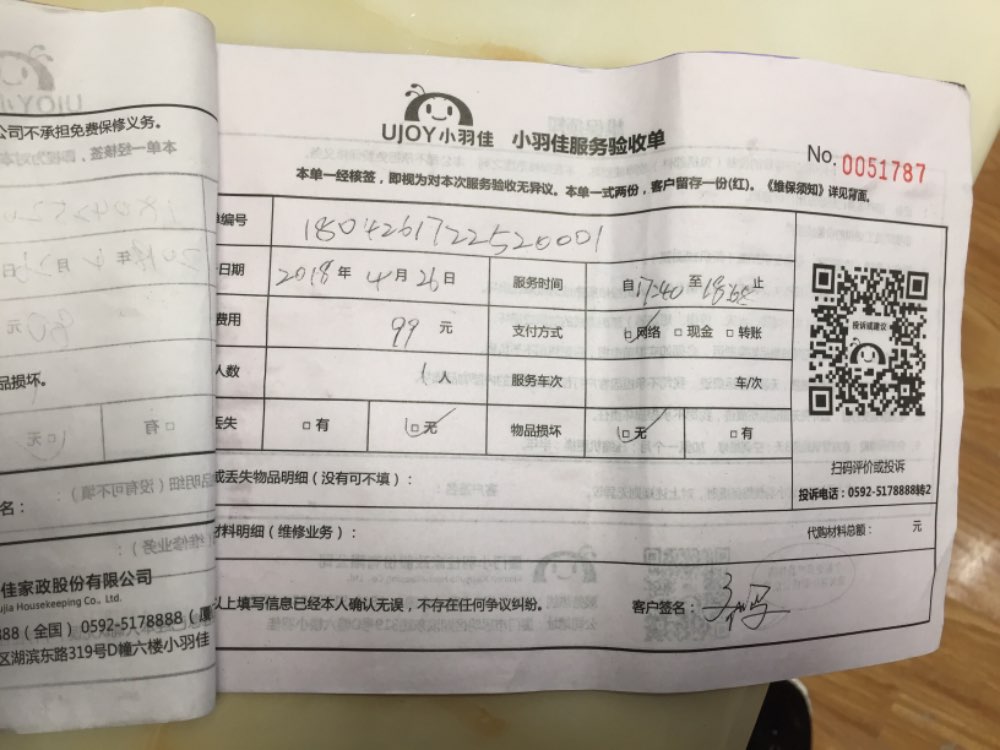 UJOY小羽佳 小羽佳服务验收单
No. 0051787
本单一经核签，即视为对本次服务验收无异议。本单一式两份，客户留存一份(红)。《维保须知》详见背面。
编号 1804261722520001
日期 2018年4月26日 服务时间 自17:40至 止
费用 99元 支付方式 □网络 □现金 □转账
人数 1人 服务车次 车/次
丢失 □有 □无 物品损坏 □无 □有
投诉或建议
扫码评价或投诉
投诉电话：0592-5178888转2
或丢失物品明细（没有可不填）：
材料明细（维修业务）： 代购材料总额： 元
以上填写信息已经本人确认无误，不存在任何争议纠纷。 客户签名：
公司不承担免费保修义务。
本单一经核签，
品损坏。
□有 □无
名：
佳家政股份有限公司
ujia Housekeeping Co., Ltd.
888（全国） 0592-5178888（厦
区湖滨东路319号D幢六楼小羽佳